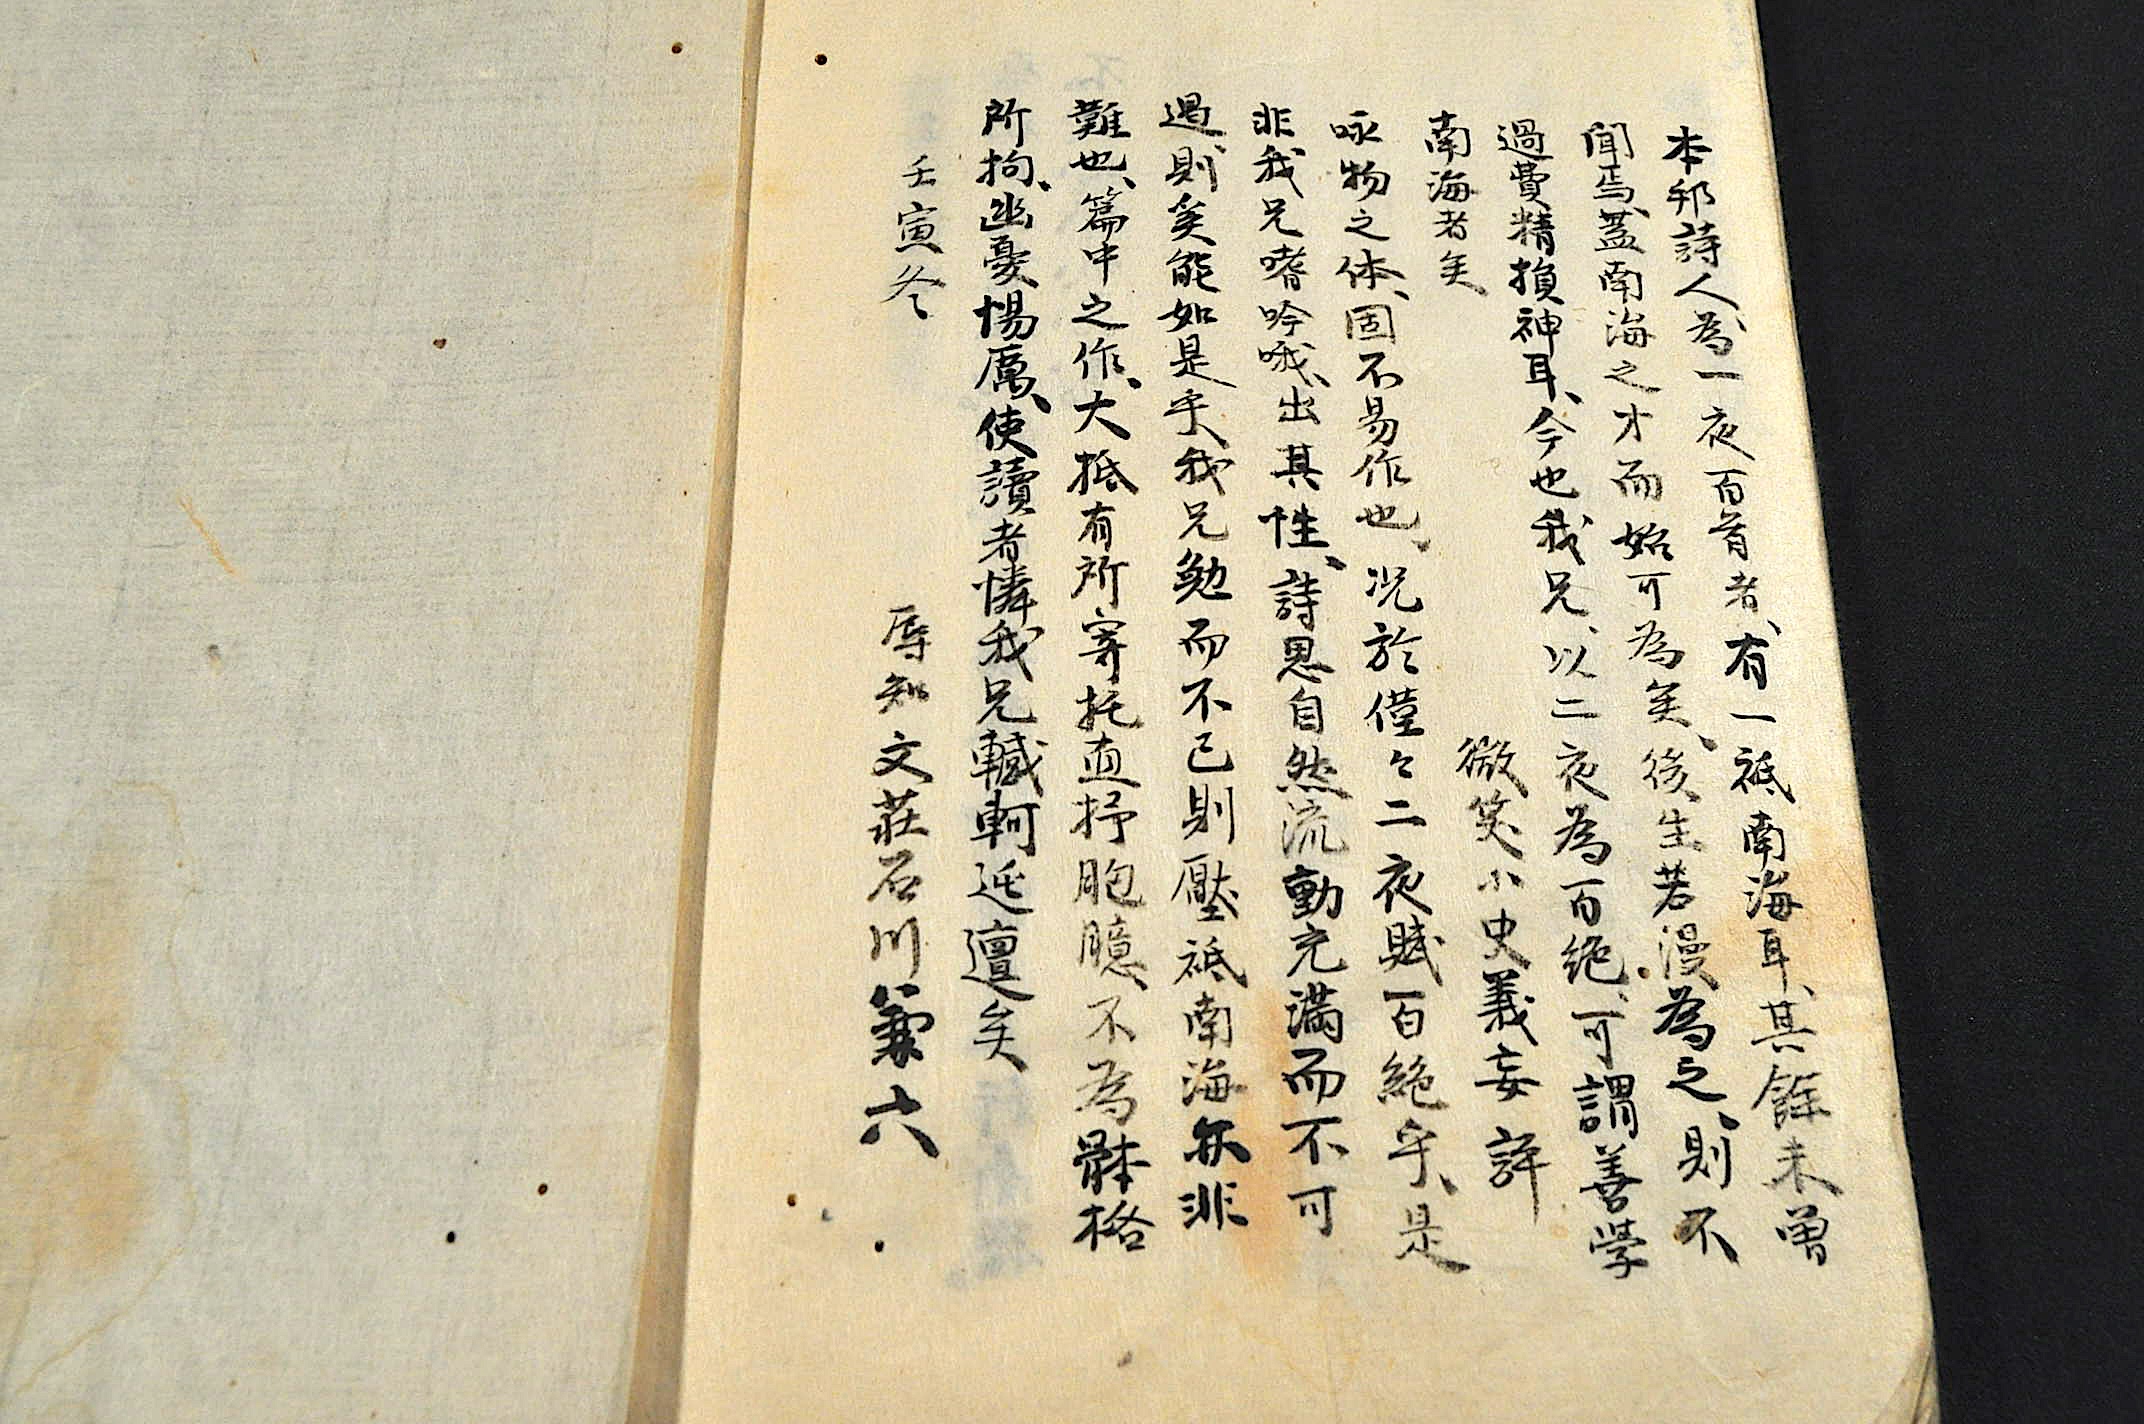 本邦詩人為一夜百首者、有一祗南海耳、其餘未曽
聞焉、蓋南海之才而始可為矣、後生若漫為之、則不
過費精損神耳、今也我兄、以二夜為百絶、可謂善学
南海者矣
微笑小史義妄評
咏物之体、固不易作也、况於僅々二夜賦百絶乎、是
非我兄嗜吟哦、出其性、詩思自然流動充満而不可
遏、則矣能如是乎、我兄勉而不已則壓祗南海亦非
難也、篇中之作、大抵有所寄托直抒胞臆、不為骵格
所拘、幽憂惕厲、使讀者憐我兄轗軻迍邅矣
壬寅冬
辱知 文莊石川 六